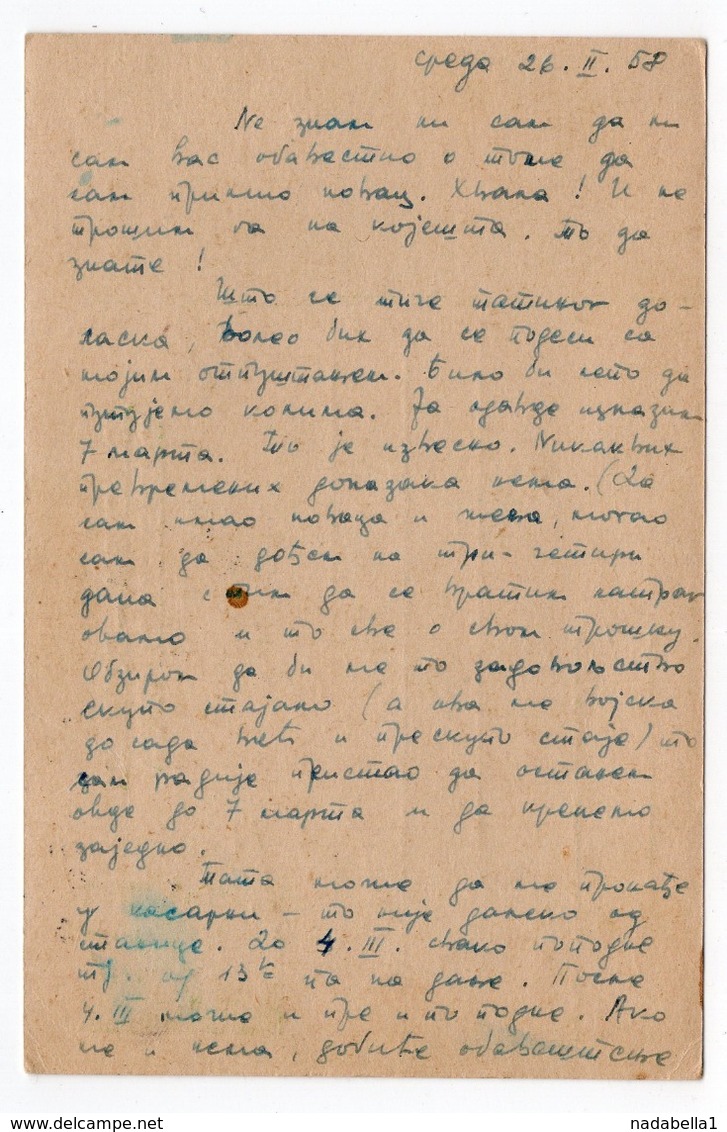 среда 26. II. 58
Не знам ни сам да ли
сам вас обавестио о томе да
сам примио новац. Хвала! И не
трошим га на којешта. то да
знате!
Што се тиче татиног до-
ласка, волео бих да се подеси са
мојим отпуштањем. Било би лепо да
путујемо колима. Ја одавде излазим
7 марта. То је извесно. Никаквих
превремених долазака нема. (Да
сам имао новаца и места, могао
сам да дођем на три-четири
дана с тим да се вратим натраг
овамо и то све о свом трошку.
Обзиром да би ме то задовољство
скупо стајало (а ова ме војска
до сада већ и прескупо стаје) то
сам радије пристао да останем
овде до 7 марта и да кренемо
заједно.
Тата може да ме пронађе
у касарни - то није далеко од
станице. До 4. III. свако поподне
тј. од 13 па на даље. После
4. III може и пре и по подне. Ако
ме и нема, добиће обавештење
nadabella1